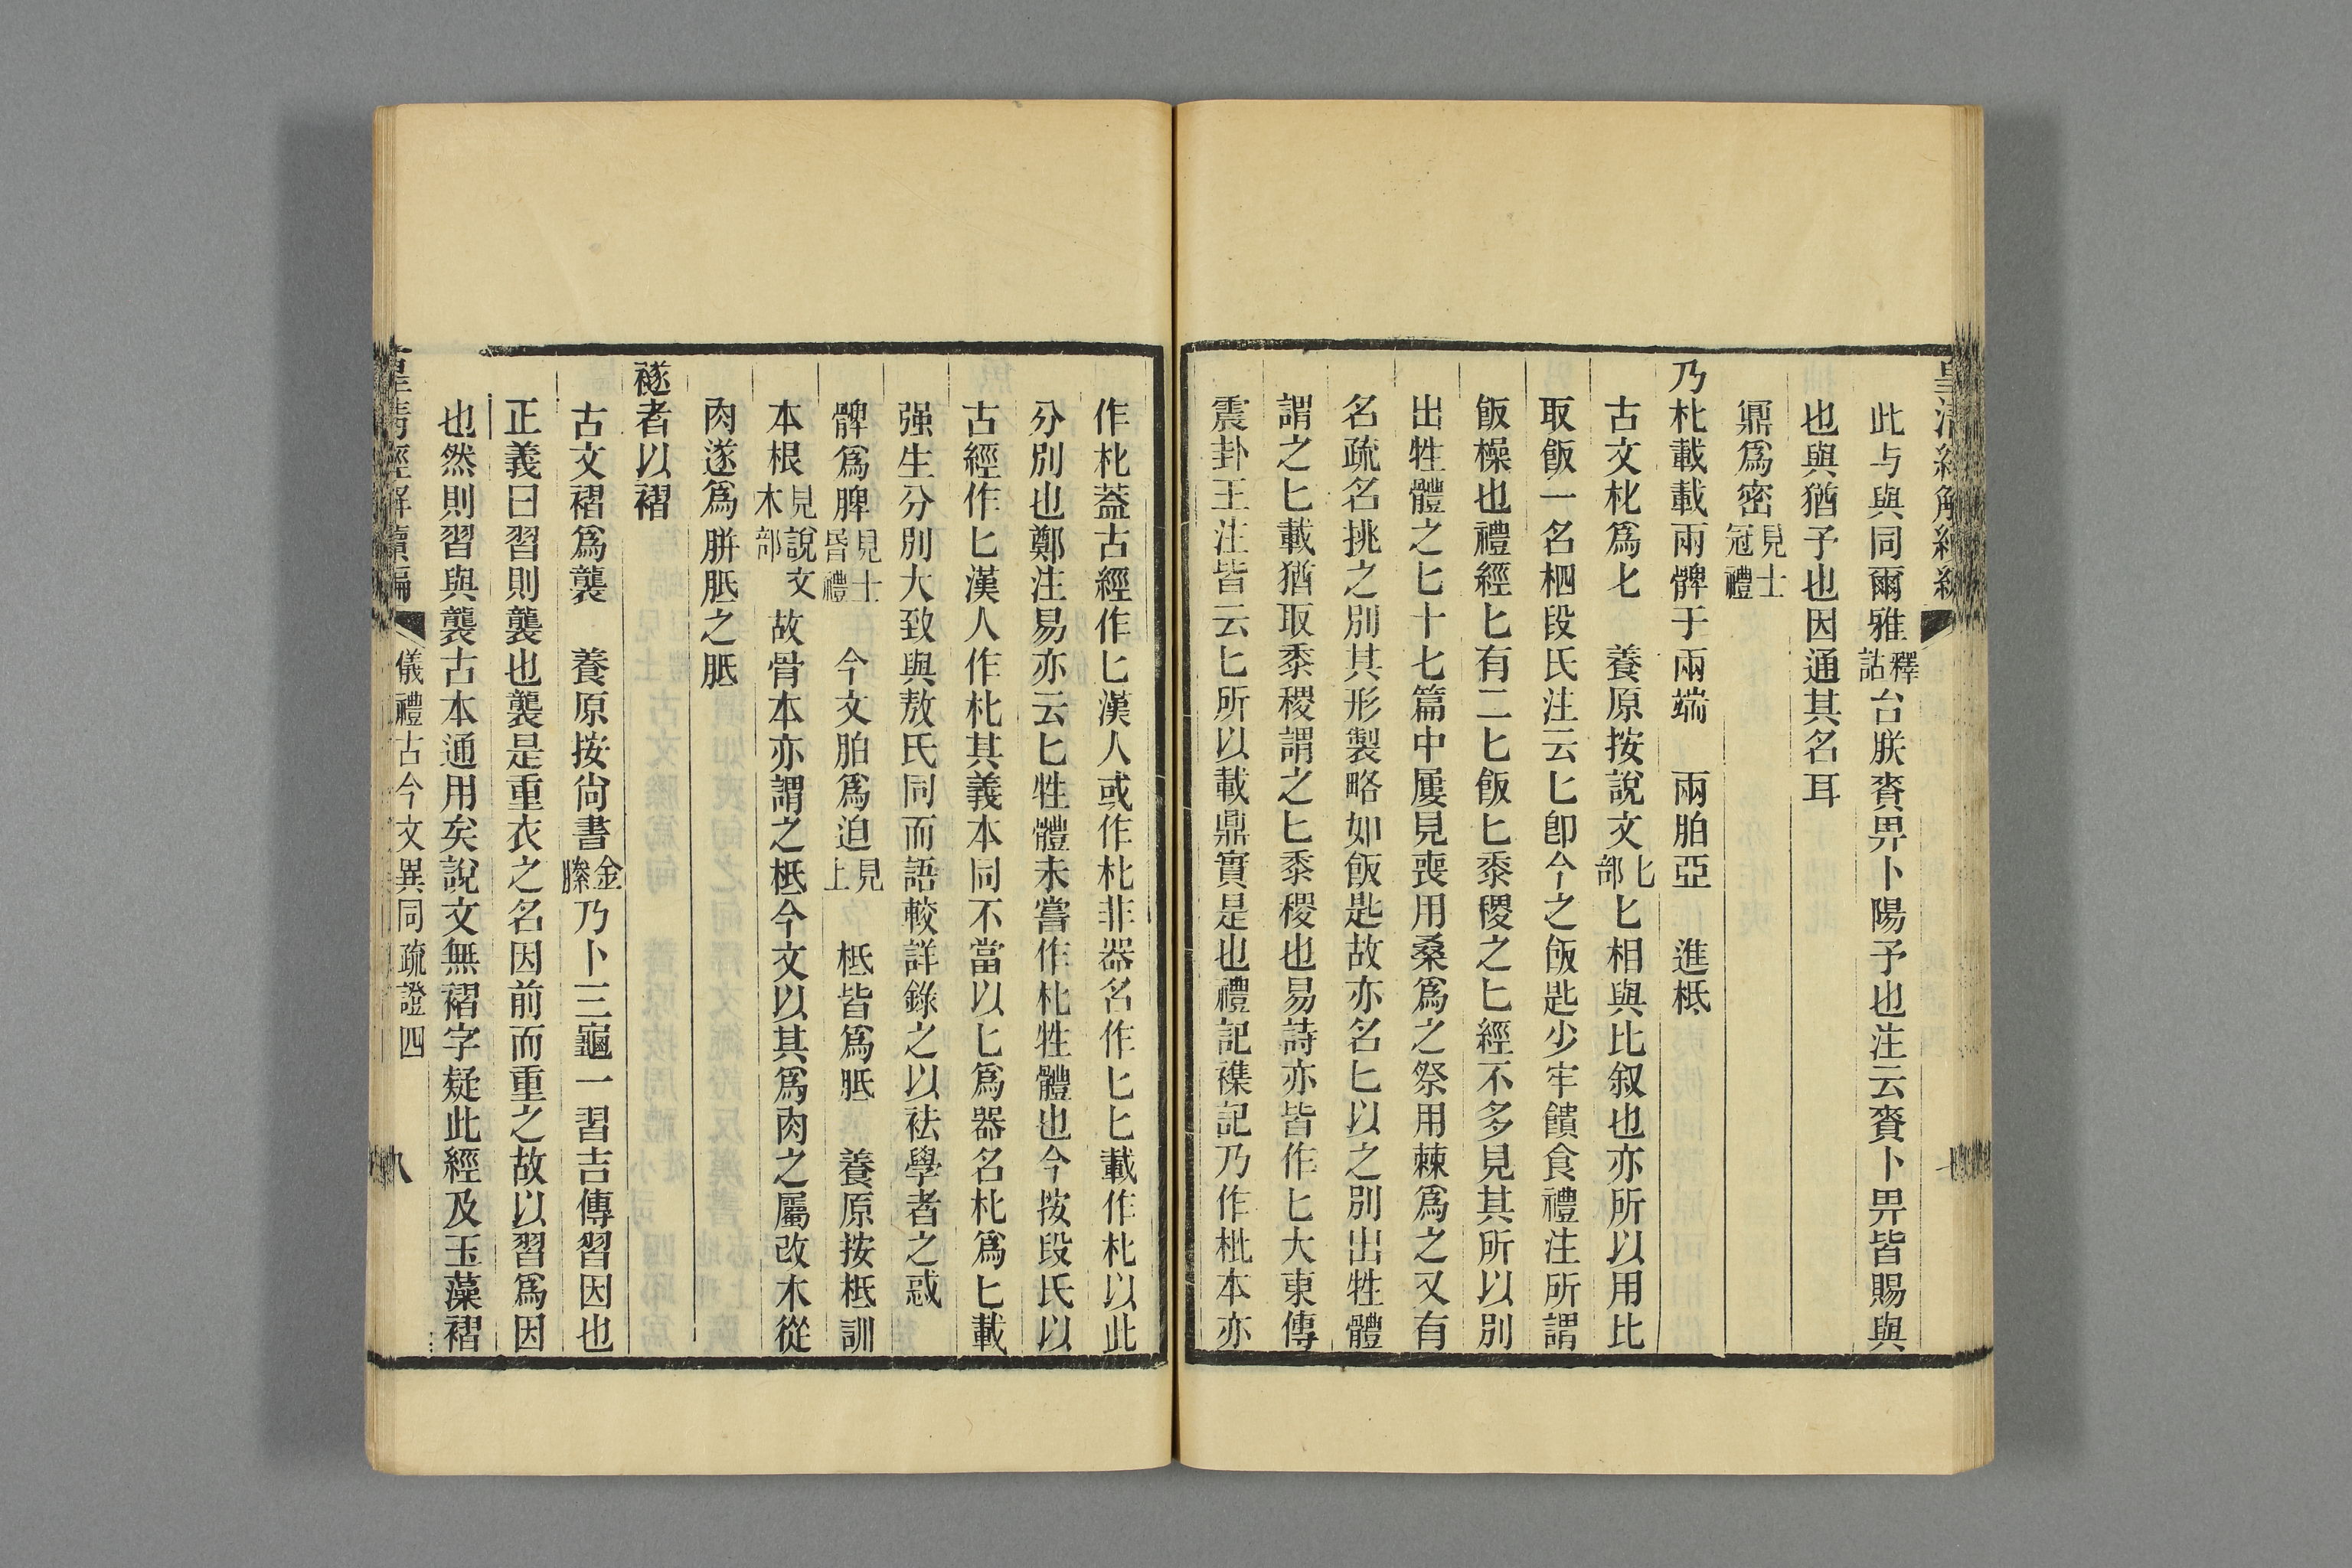 此与與同爾雅釋詁台朕賚畀卜陽予也注云賚卜畀皆賜與
也與猶予也因通其名耳
鼏爲密見士冠禮
乃朼載載兩髀于兩端　兩胉亞　進柢
古文朼爲匕　養原按說文匕部匕相與比叙也亦所以用比
取飯一名柶段氏注云匕卽今之飯匙少牢饋食禮注所謂
飯橾也禮經匕有二匕飯匕黍稷之匕經不多見其所以別
出牲體之匕十七篇中屢見喪用桑爲之祭用棘爲之又有
名疏名挑之別其形製略如飯匙故亦名匕以之別出牲體
謂之匕載猶取黍稷謂之匕黍稷也易詩亦皆作匕大東傳
震卦王注皆云匕所以載鼎實是也禮記襍記乃作枇本亦
作朼葢古經作匕漢人或作朼非器名作匕匕載作朼以此
分別也鄭注易亦云匕牲體未嘗作朼牲體也今按段氏以
古經作匕漢人作朼其義本同不當以匕爲器名朼爲匕載
强生分別大致與敖氏同而語較詳錄之以祛學者之惑
髀爲脾見士昏禮　今文胉爲迫見上　柢皆爲胝　養原按柢訓
本根見說文木部　故骨本亦謂之柢今文以其爲肉之屬改木從
肉遂爲腁胝之胝
襚者以褶
古文褶爲襲　養原按尙書金縢乃卜三龜一習吉傳習因也
正義曰習則襲也襲是重衣之名因前而重之故以習爲因
也然則習與襲古本通用矣說文無褶字疑此經及玉藻褶
皇清經解續編　儀禮古今文異同疏證四　八